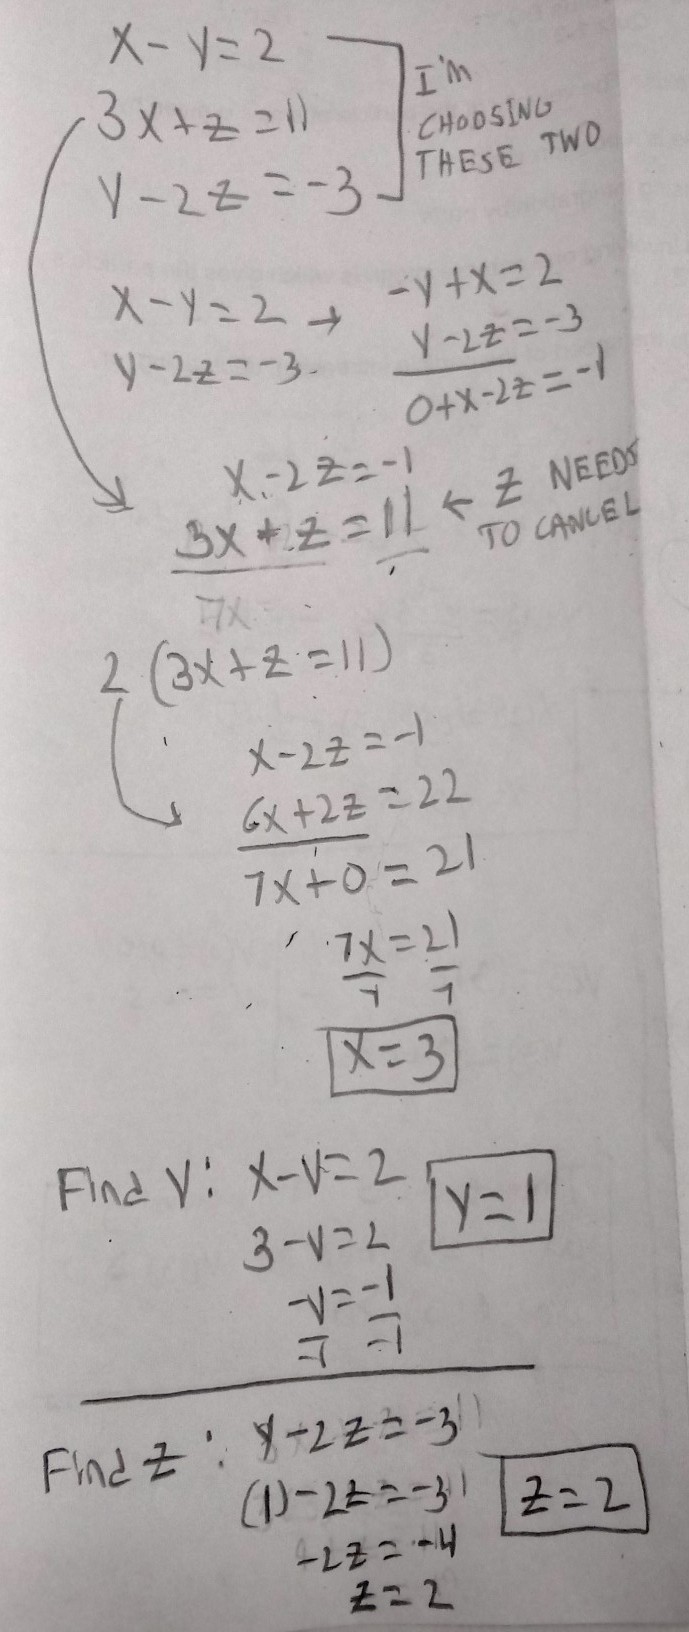 x-y=2
3x+z=11
y-2z=-3
I'm
CHOOSING
THESE TWO
x-y=2 → -y+x=2
y-2z=-3 y-2z=-3
0+x-2z=-1
x-2z=-1
3x+z=11 ← Z NEEDS
TO CANCEL
7x
2(3x+z=11)
x-2z=-1
6x+2z=22
7x+0=21
7x=21
7 7
x=3
Find y: x-y=2 y=1
3-y=2
-y=-1
-1 -1
Find z: y-2z=-3
(1)-2z=-3 z=2
-2z=-4
z=2